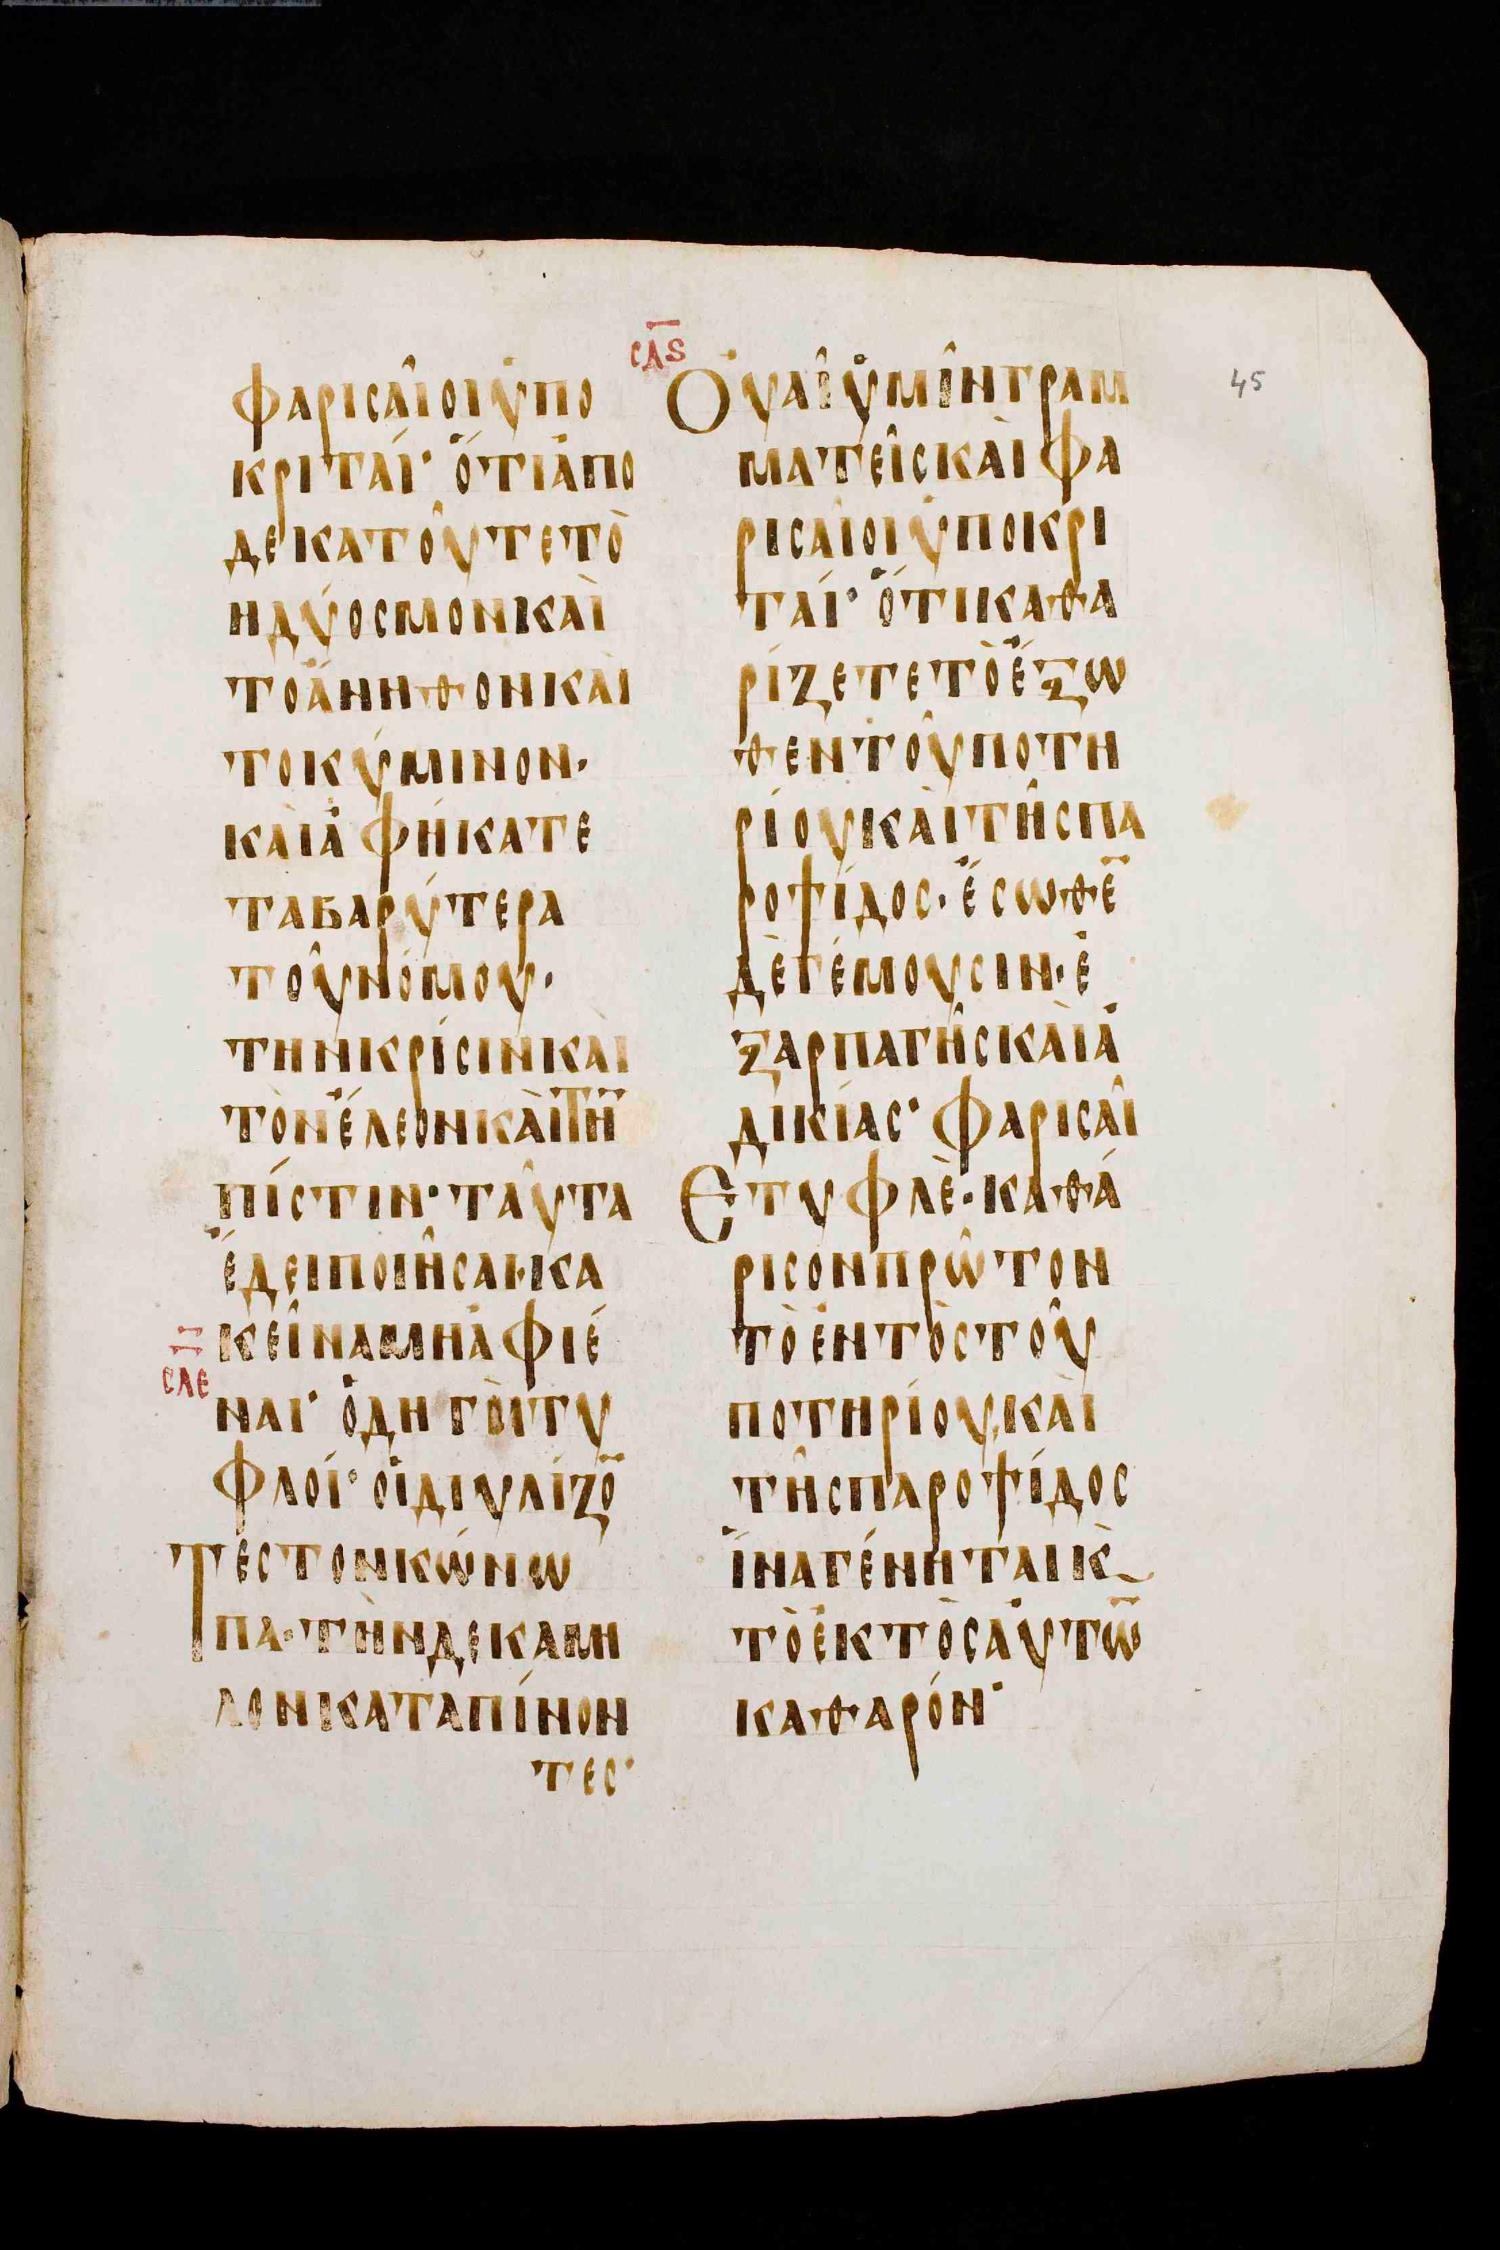 45
φαρισαῖοι ὑπο
κριταί· ὅτι ἀπο
δεκατοῦτε τὸ
ηδύοσμον καὶ
το ἄνηθον καὶ
το κύμινον·
καὶ ἀφήκατε
τα βαρύτερα
τοῦ νόμου·
την κρίσιν καὶ
τὸν ἔλεον καὶ τη̅
πίστιν· ταῦτα
ἔδει ποιῆσαι· κα
κεῖνα μη ἀφιέ
σλε
ναι· ὁδηγοὶ τυ
φλοί· οἱ διυλίζο̅
τες τον κώνω
πα· τὴν δε καμη
λον καταπίνον
τες·
σλϛ
Ουαὶ ὑμῖν γραμ
ματεῖς καὶ φα
ρισαῖοι ὑποκρι
ταί· ὅτι καθα
ρίζετε τὸ ἔξω
θεν τοῦ ποτη
ρίου καὶ τῆς πα
ροψίδος· ἔσωθε̅
δὲ γέμουσιν· ἐ
ξ αρπαγῆς καὶ ἀ
δικίας· φαρισαῖ
ε τυφλὲ· καθά
ρισον πρῶτον
τὸ ἐντὸς τοῦ
ποτηρίου, καὶ
τῆς παροψίδος
ἵνα γένηται κ̀
τὸ ἐκτὸς ἀυτω̅
καθαρόν·